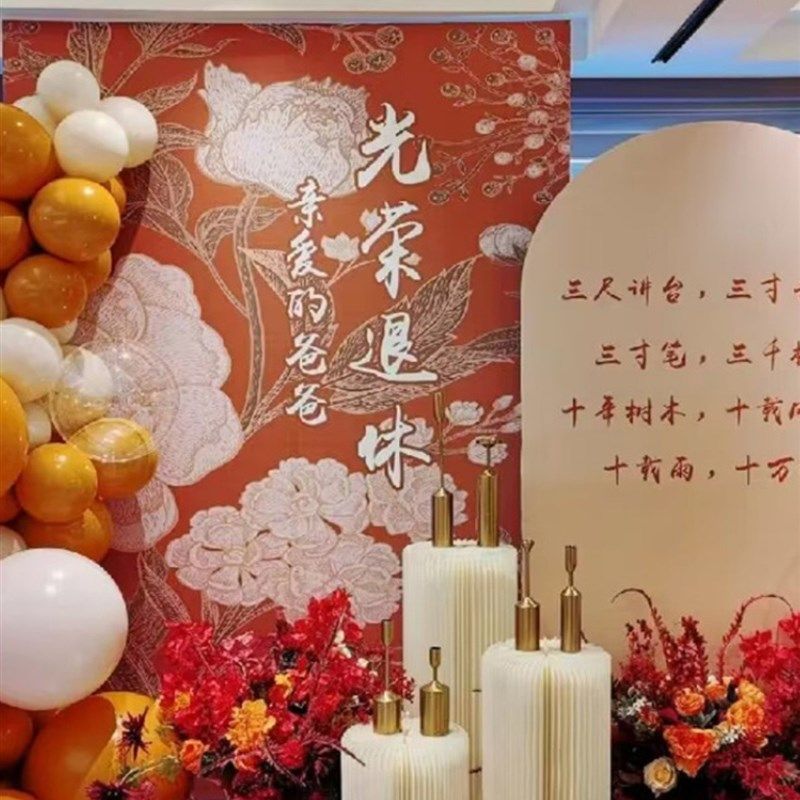 光荣退休
亲爱的爸爸
三尺讲台，三寸
三寸笔，三千
十年树木，十载
十载雨，十万